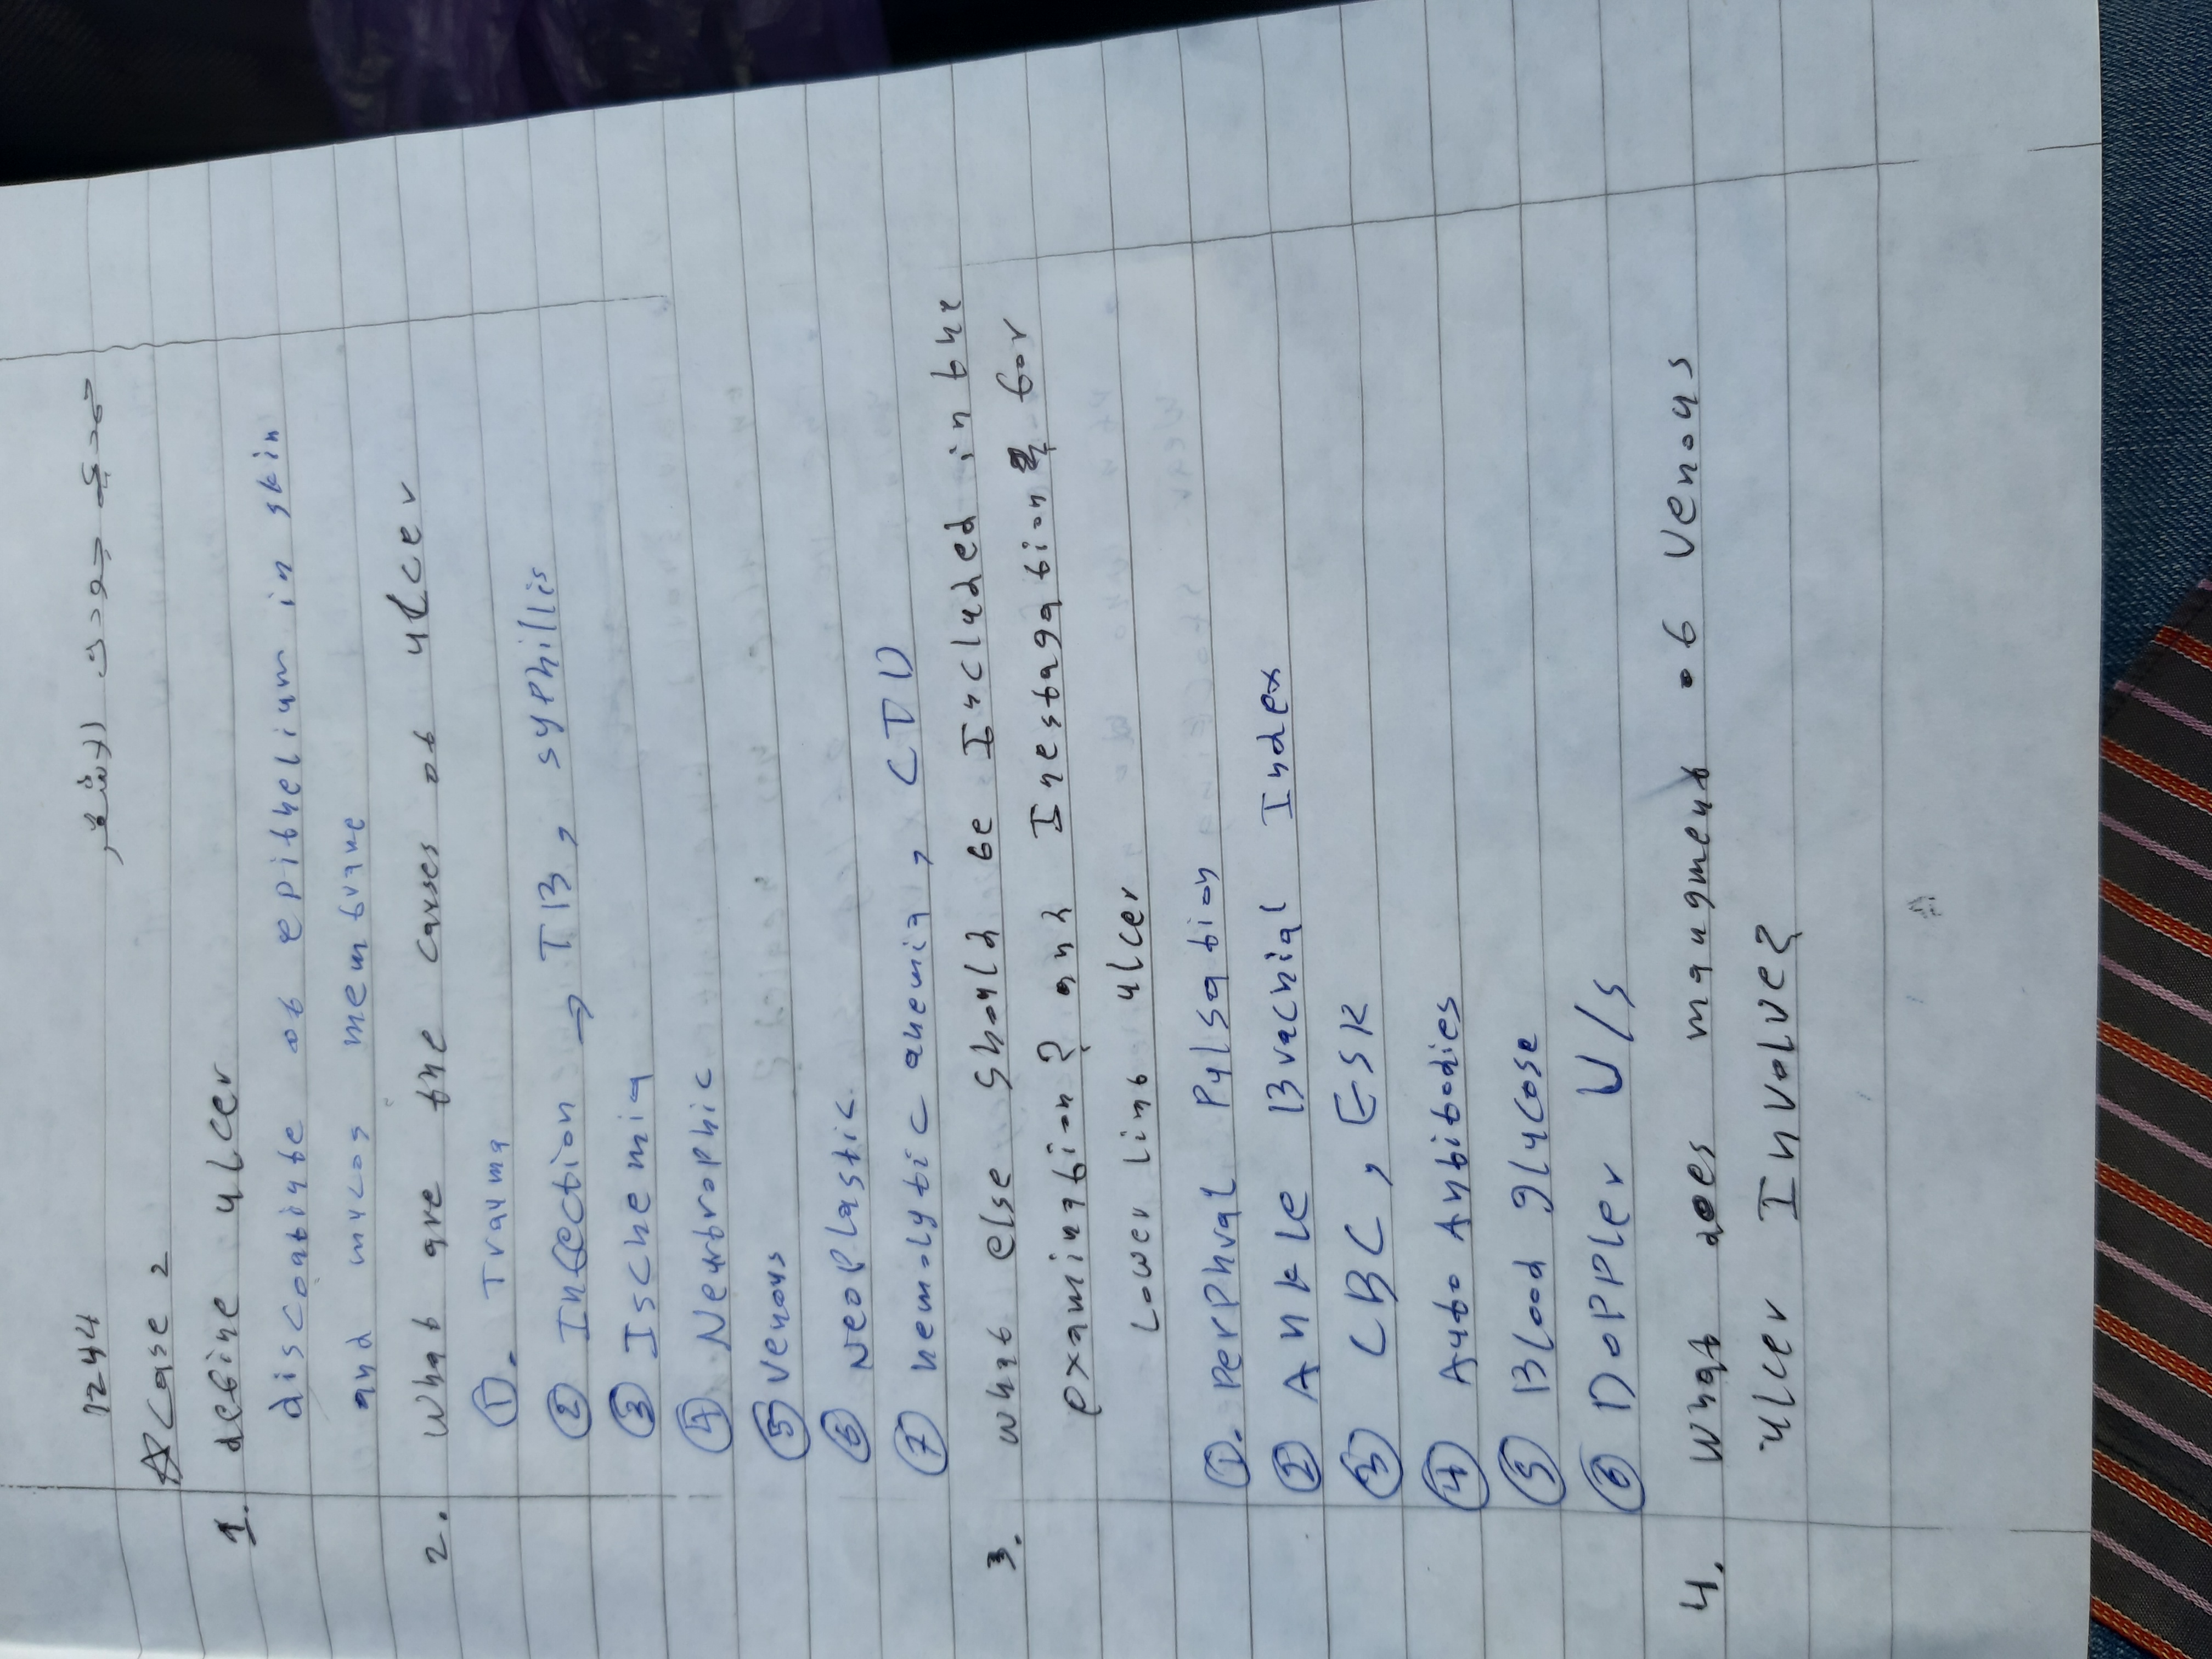 7244
Case 2
1. define ulcer
discontinute of epithelium in skin
and mucos membrane
2. What are the causes of ulcer
①. Trauma
② Infection → TB, syphillis
③ Ischemia
④ Neurtrophic
⑤ Venous
⑥ Neoplastic
⑦ hemolytic anemia, CTD
3. what else should be Included in the
examination? and Inestagation for
Lower limb ulcer
①. PerPhral Pulsation
② Ankle Brachial Index
③ CBC, ESR
④ Auto Antibodies
⑤ Blood glucose
⑥ Doppler U/s
4. What does mangment of Venous
ulcer Involve?